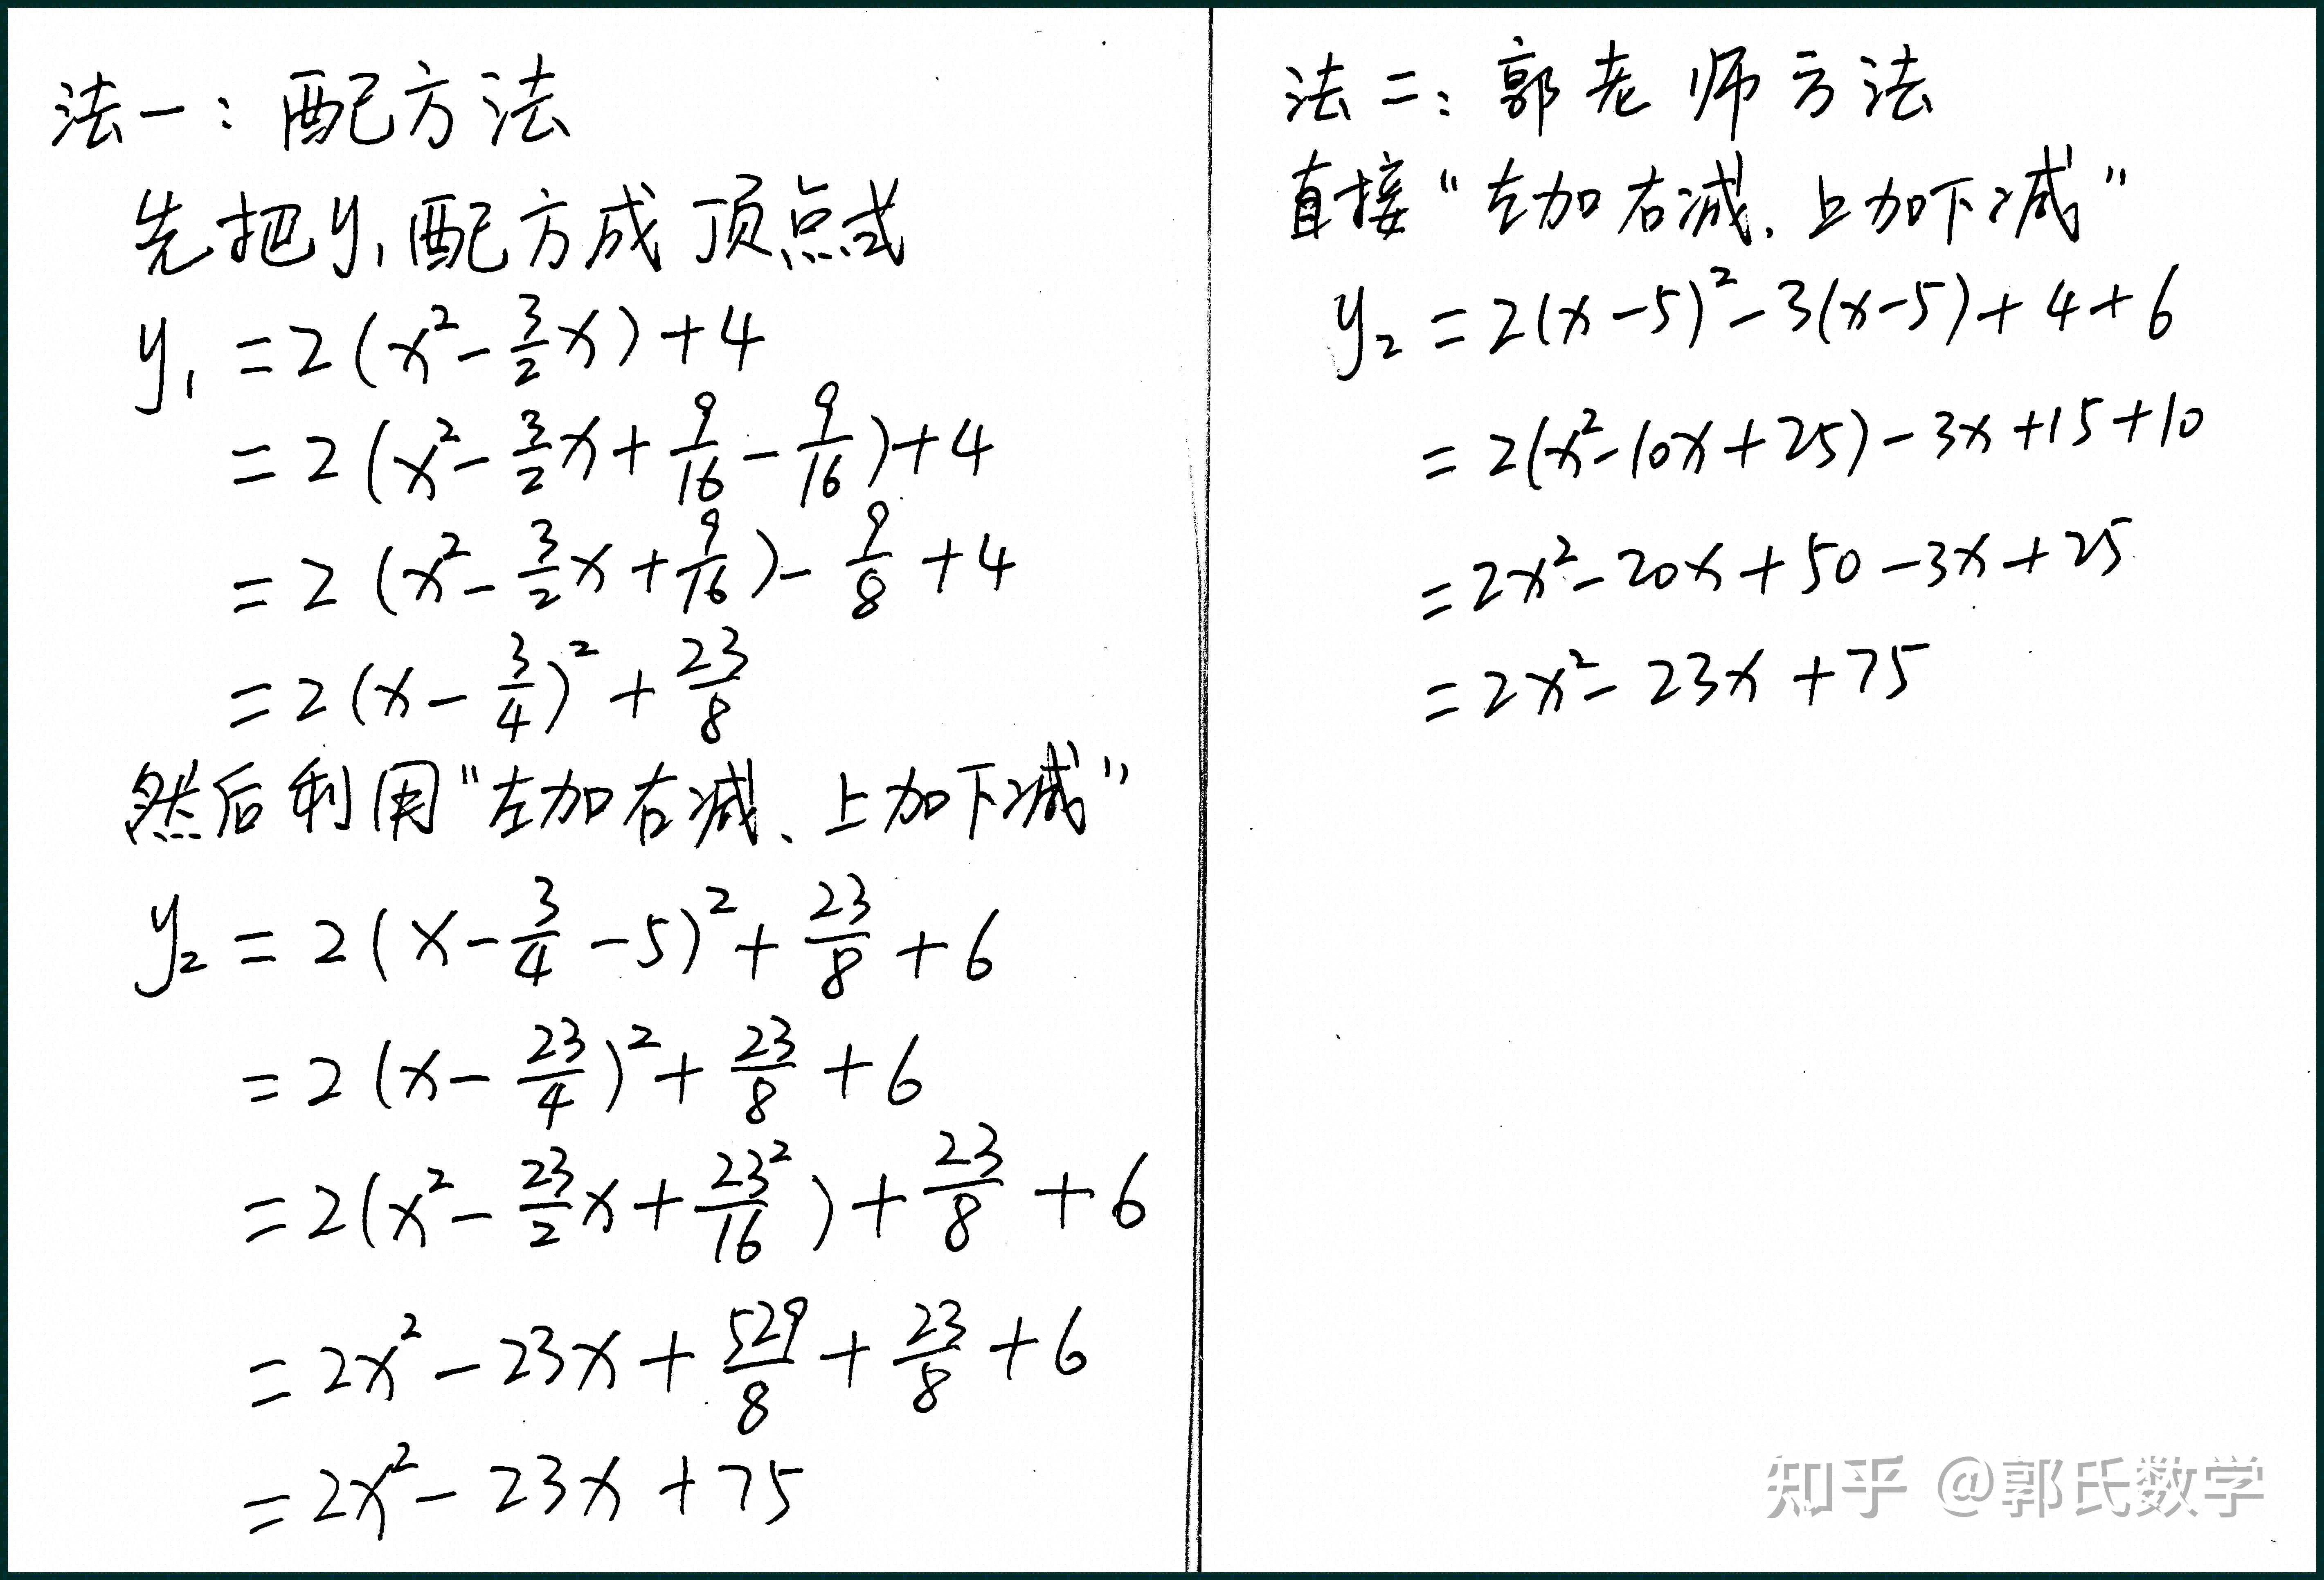 法一：配方法
先把y₁配方成顶点式
y₁ = 2(x² - 3/2x) + 4
= 2(x² - 3/2x + 9/16 - 9/16) + 4
= 2(x² - 3/2x + 9/16) - 9/8 + 4
= 2(x - 3/4)² + 23/8
然后利用"左加右减、上加下减"
y₂ = 2(x - 3/4 - 5)² + 23/8 + 6
= 2(x - 23/4)² + 23/8 + 6
= 2(x² - 23/2x + 23²/16) + 23/8 + 6
= 2x² - 23x + 529/8 + 23/8 + 6
= 2x² - 23x + 75
法二：郭老师方法
直接"左加右减、上加下减"
y₂ = 2(x-5)² - 3(x-5) + 4 + 6
= 2(x² - 10x + 25) - 3x + 15 + 10
= 2x² - 20x + 50 - 3x + 25
= 2x² - 23x + 75
知乎 @郭氏数学